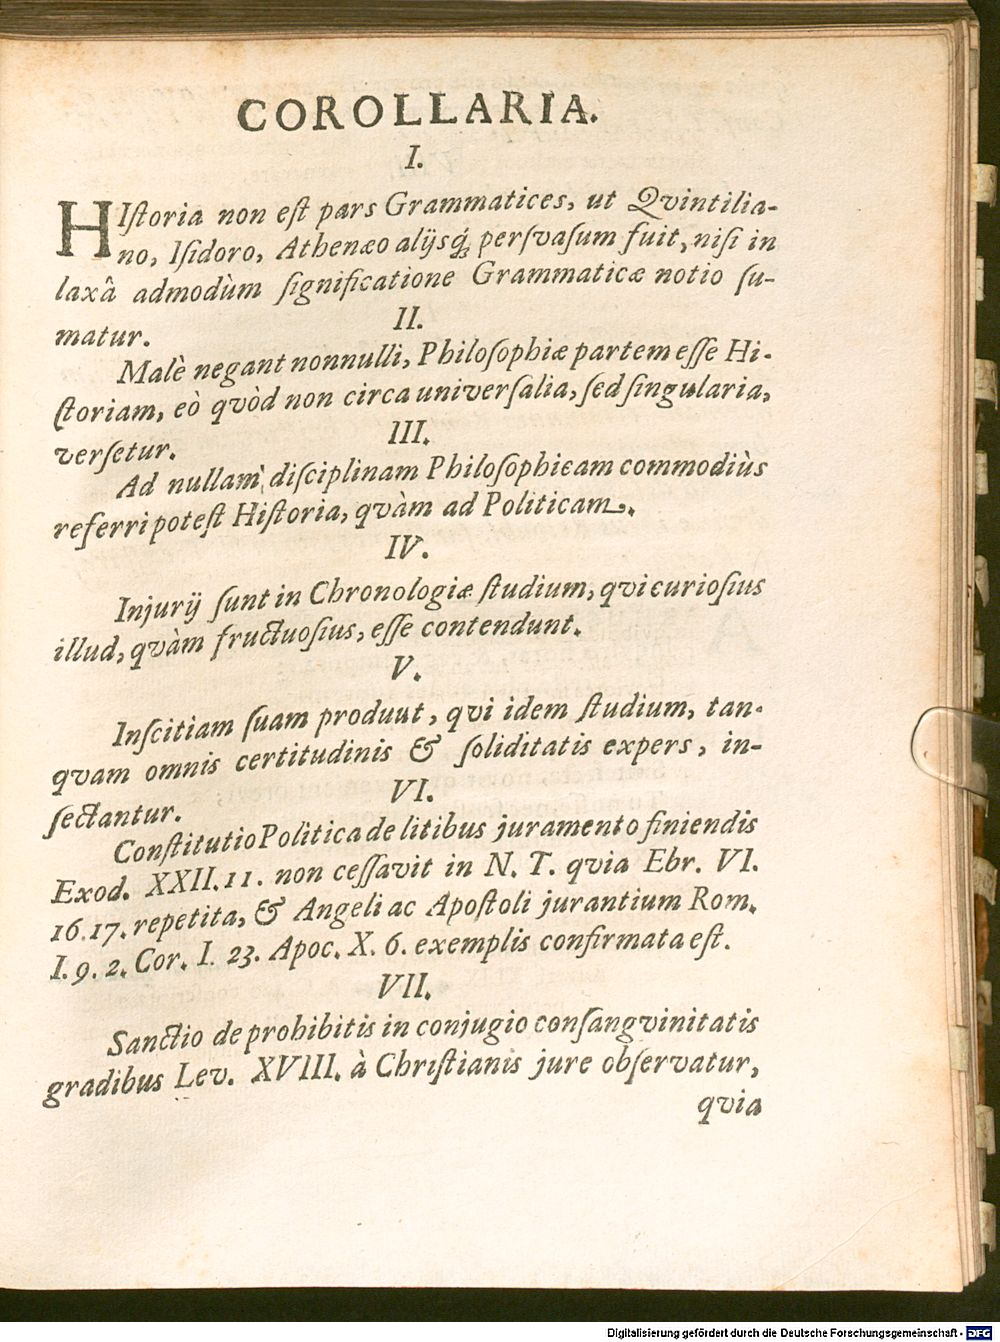 COROLLARIA.
I.
HIſtoria non eſt pars Grammatices, ut Qvintilia-
no, Iſidoro, Athenæo alijsq́; perſvaſum fuit, niſi in
laxâ admodùm ſignificatione Grammaticæ notio ſu-
matur.
II.
Malè negant nonnulli, Philoſophiæ partem eſſe Hi-
ſtoriam, eò qvòd non circa univerſalia, ſed ſingularia,
verſetur.
III.
Ad nullam diſciplinam Philoſophicam commodiùs
referri poteſt Hiſtoria, qvàm ad Politicam.
IV.
Injurij ſunt in Chronologiæ ſtudium, qvi curioſius
illud, qvàm fructuoſius, eſſe contendunt.
V.
Inſcitiam ſuam produut, qvi idem ſtudium, tan-
qvam omnis certitudinis & ſoliditatis expers, in-
ſectantur.
VI.
Conſtitutio Politica de litibus juramento finiendis
Exod. XXII. 11. non ceſſavit in N. T. qvia Ebr. VI.
16. 17. repetita, & Angeli ac Apoſtoli jurantium Rom.
I. 9. 2. Cor. I. 23. Apoc. X. 6. exemplis confirmata eſt.
VII.
Sanctio de prohibitis in conjugio conſangvinitatis
gradibus Lev. XVIII. à Chriſtianis jure obſervatur,
qvia
Digitalisierung gefördert durch die Deutsche Forschungsgemeinschaft - DFG